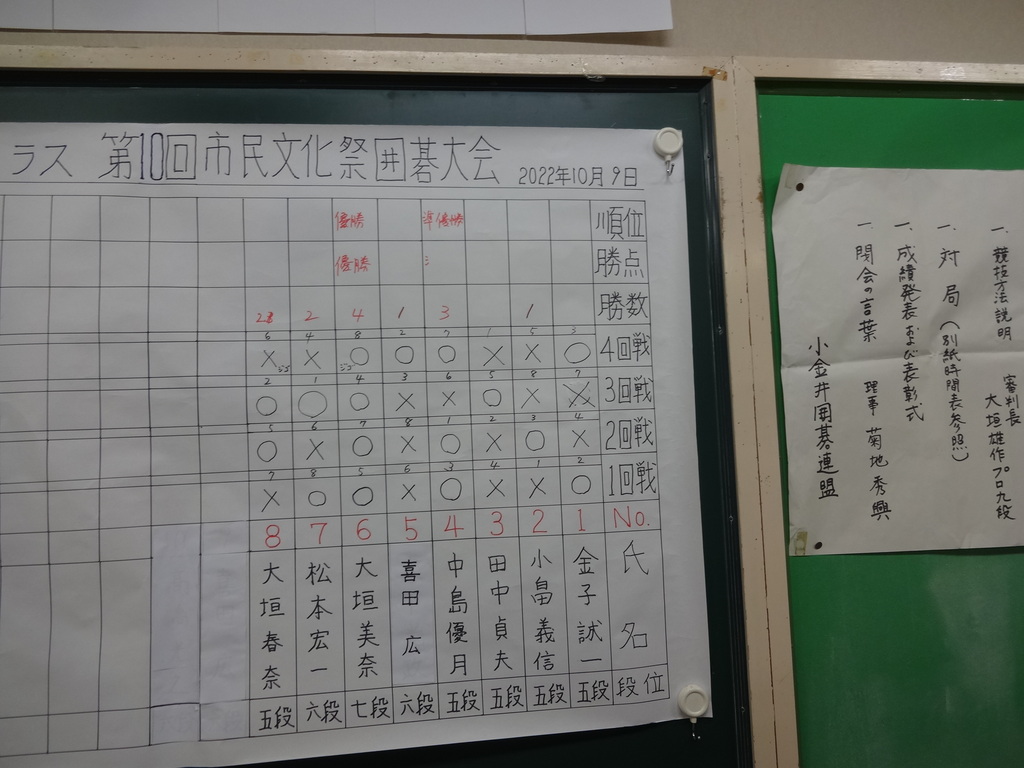 ラス 第10回市民文化祭囲碁大会 2022年10月9日
優勝 準優勝 順位
優勝 勝点
2 2 4 1 3 1 勝数
6 4 8 2 7 1 5 3
× × ○ ○ ○ × × ○ 4回戦
ジゴ ジゴ
2 1 4 3 6 5 8 7
○ ○ ○ × × ○ × × 3回戦
5 6 7 8 1 2 3 4
○ × ○ × ○ × ○ × 2回戦
7 8 5 6 3 4 1 2
× ○ ○ × ○ × × ○ 1回戦
8 7 6 5 4 3 2 1 No.
大垣春奈 松本宏一 大垣美奈 喜田広 中島優月 田中貞夫 小畠義信 金子誠一 氏名
五段 六段 七段 六段 五段 五段 五段 五段 段位
一. 競技方法説明 審判長 大垣雄作プロ九段
一. 対局(別紙時間表参照)
一. 成績発表および表彰式
一 閉会の言葉 理事 菊地秀興
小金井囲碁連盟